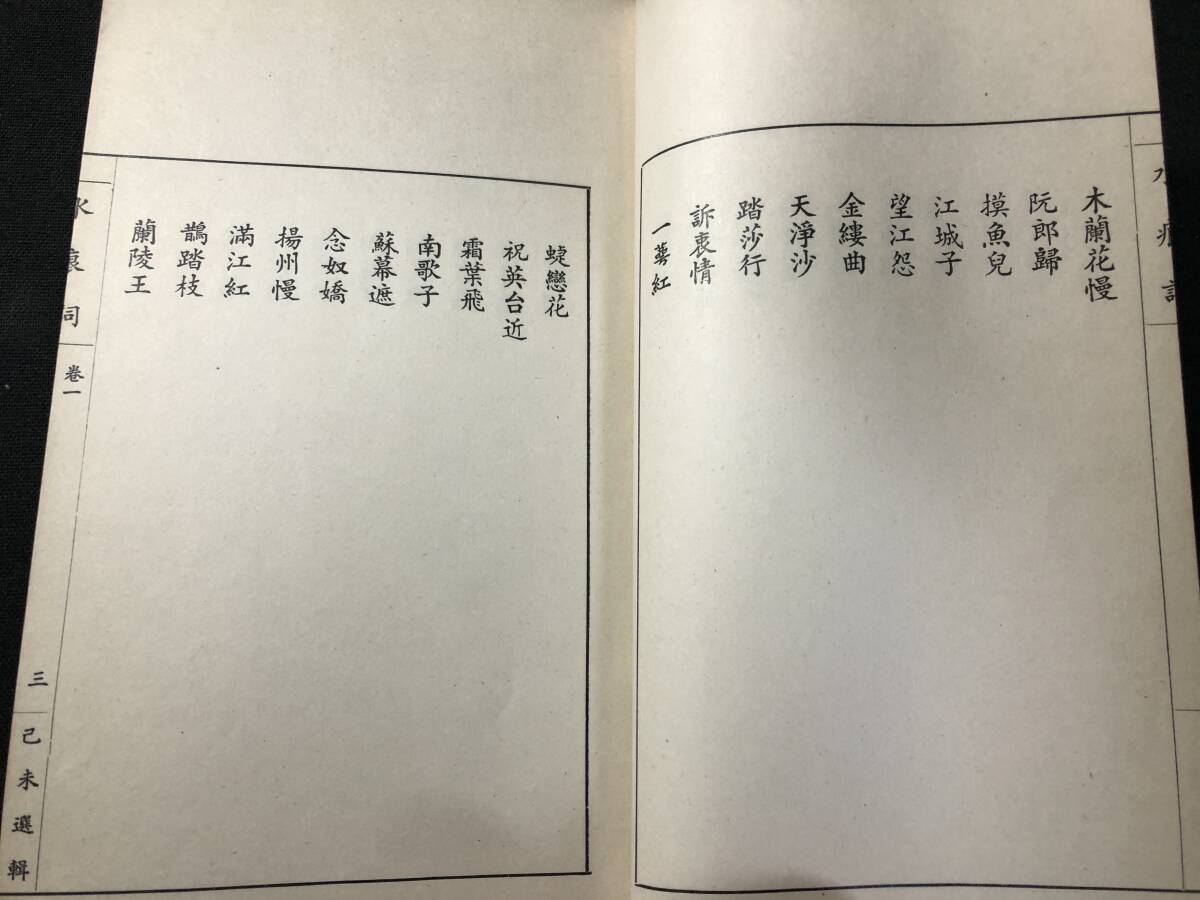 木蘭花慢
阮郎歸
摸魚兒
江城子
望江怨
金縷曲
天淨沙
踏莎行
訴衷情
一萼紅
蜨戀花
祝英台近
霜葉飛
南歌子
蘇幕遮
念奴嬌
揚州慢
滿江紅
鵲踏枝
蘭陵王
卷一
三
己未選輯